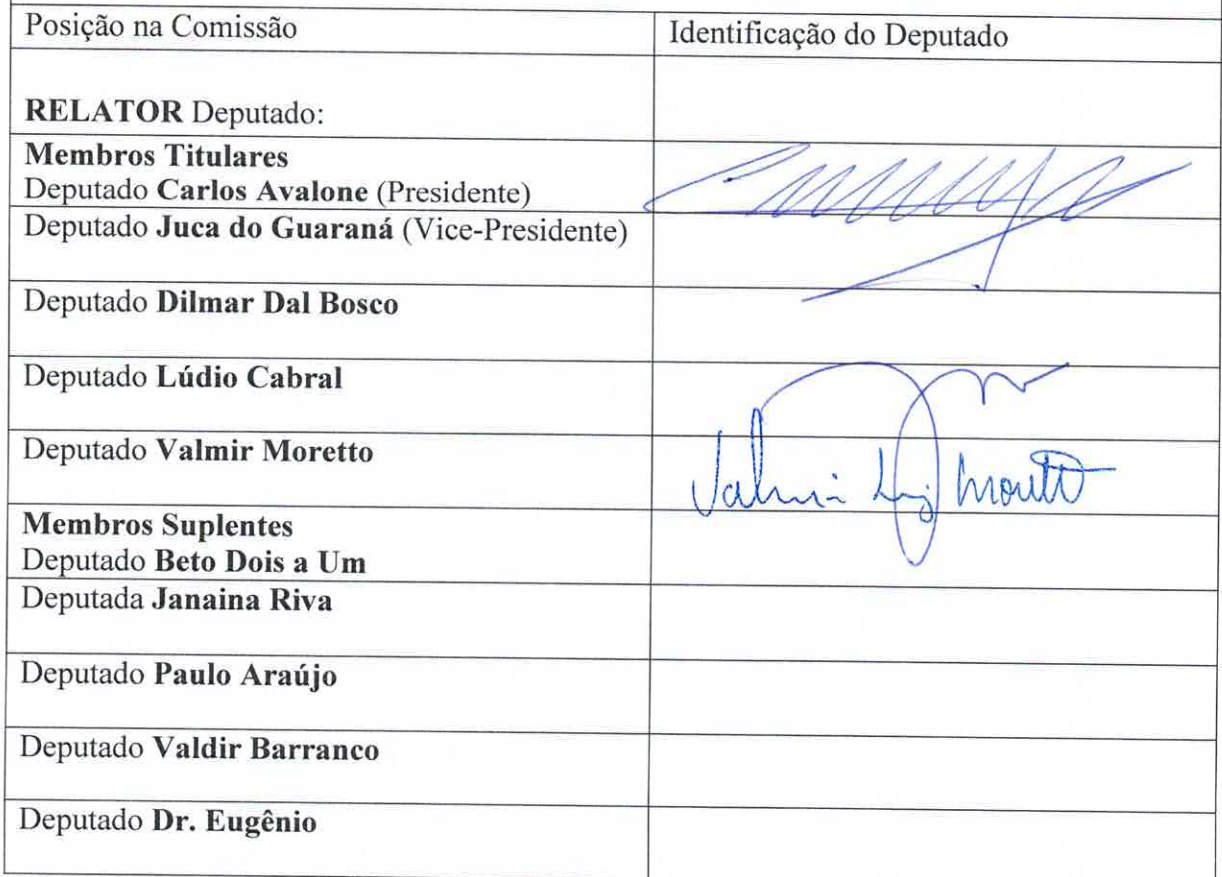 Posição na Comissão
Identificação do Deputado
RELATOR Deputado:
Membros Titulares
Deputado Carlos Avalone (Presidente)
Deputado Juca do Guaraná (Vice-Presidente)
Deputado Dilmar Dal Bosco
Deputado Lúdio Cabral
Deputado Valmir Moretto
Valmir Luiz Moretto
Membros Suplentes
Deputado Beto Dois a Um
Deputada Janaina Riva
Deputado Paulo Araújo
Deputado Valdir Barranco
Deputado Dr. Eugênio